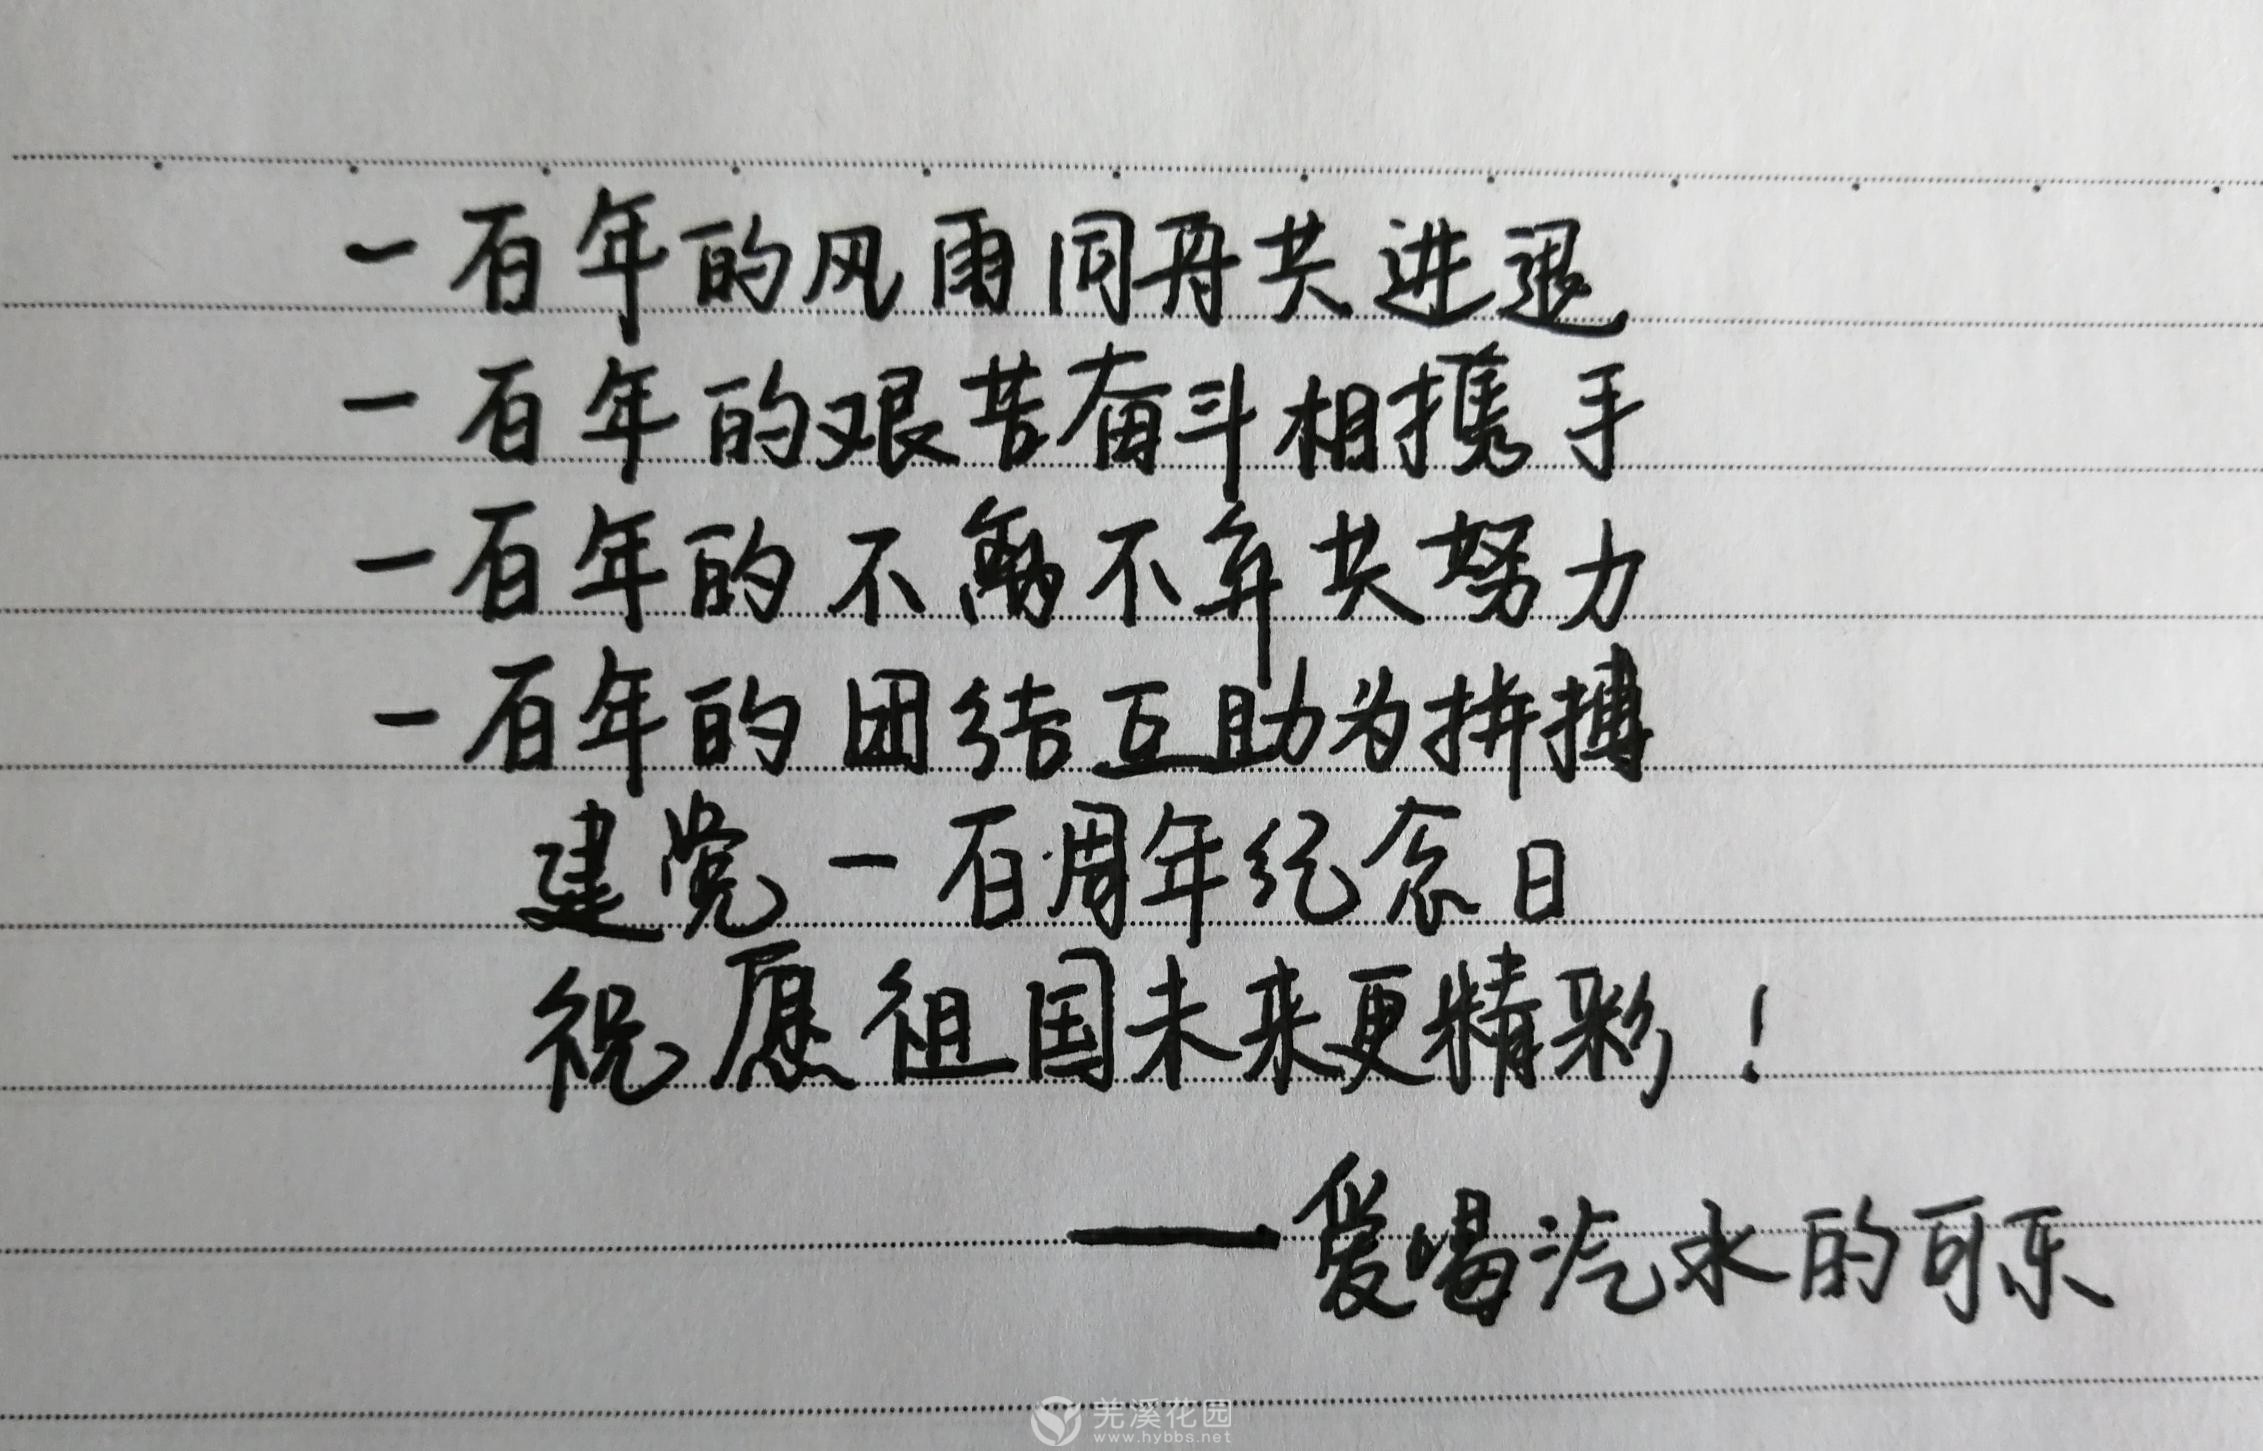 一百年的风雨同舟共进退
一百年的艰苦奋斗相携手
一百年的不离不弃共努力
一百年的团结互助为拼搏
建党一百周年纪念日
祝愿祖国未来更精彩！
——爱喝汽水的可乐
羌溪花园
www.hybbs.net